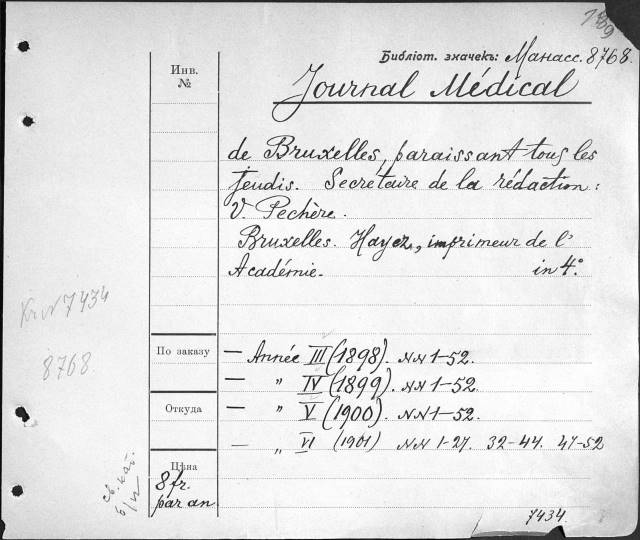 7434
Библіот. значекъ: Манасс. 8768.
Инв.
№
Journal Médical
de Bruxelles, paraissant tous les
jeudis. Secrétaire de la rédaction:
V. Pechère.
Bruxelles. Hayez, imprimeur de l'
Académie. in 4°.
7434
8768
По заказу
— Année III (1898). NN 1-52.
— " IV (1899). NN 1-52.
Откуда
— " V (1900). NN 1-52.
— " VI (1901) NN 1-27. 32-44. 47-52
Цѣна
8 fr.
par an
7434.